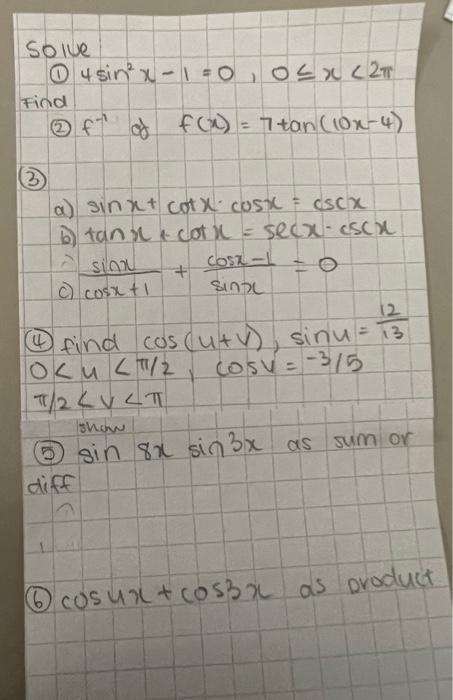 Solve
① 4sin²x - 1 = 0, 0 ≤ x < 2π
Find
② f⁻¹ of f(x) = 7tan(10x-4)
③
a) sinx + cotx · cosx = cscx
b) tanx + cotx = secx · cscx
c) sinx/(cosx+1) + (cosx-1)/sinx = 0
④ find cos(u+v), sinu = 12/13
0<u<π/2, cosv = -3/5
π/2 <v<π
show
⑤ sin 8x sin 3x as sum or
diff
⑥ cos4x + cos3x as product